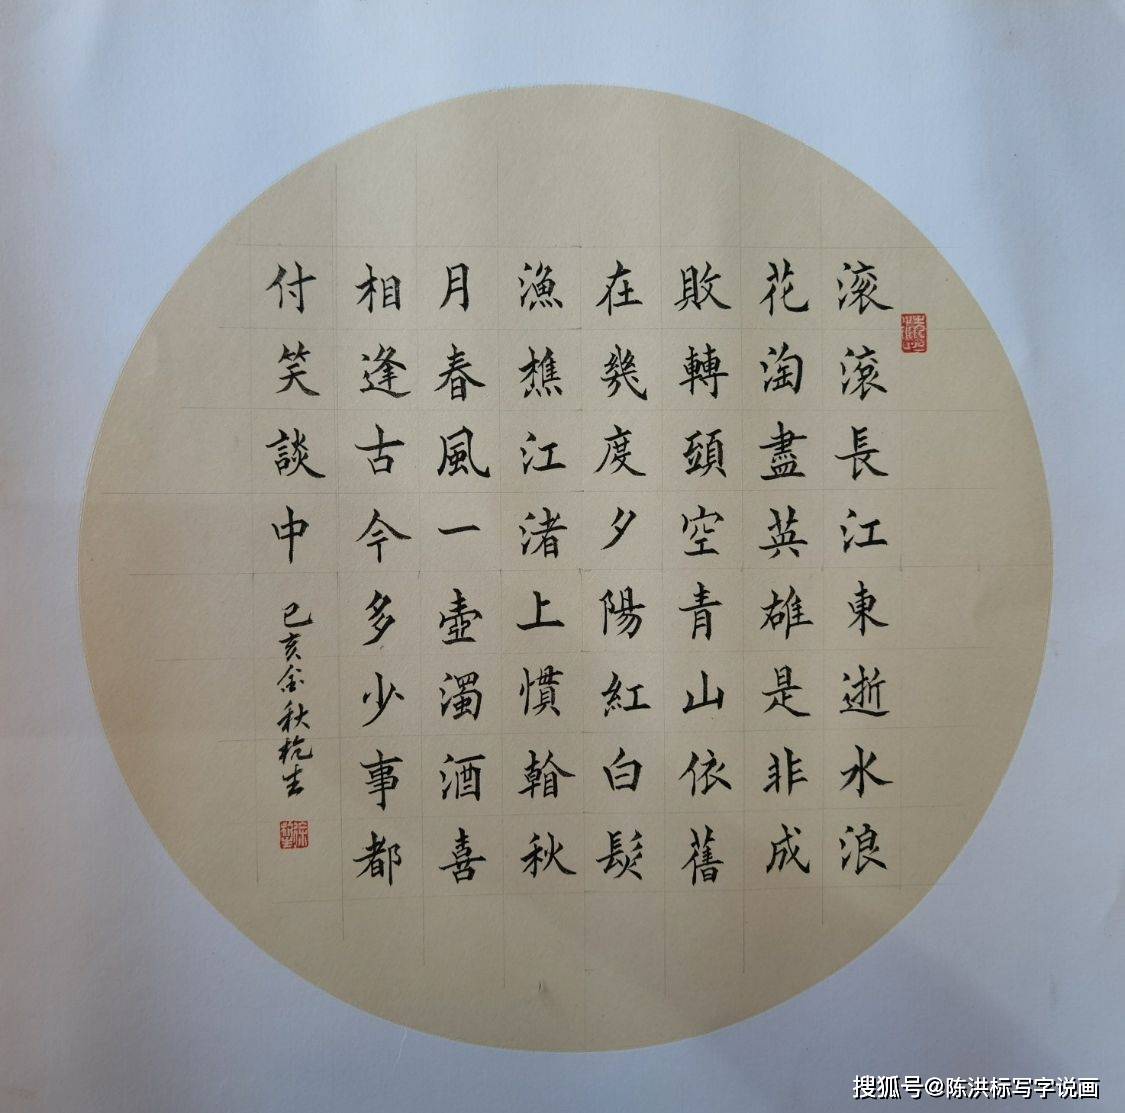 滚滚長江東逝水浪
花淘盡英雄是非成
敗轉頭空青山依舊
在幾度夕陽紅白髮
漁樵江渚上慣看秋
月春風一壺濁酒喜
相逢古今多少事都
付笑談中
己亥金秋杭生
搜狐号@陈洪标写字说画